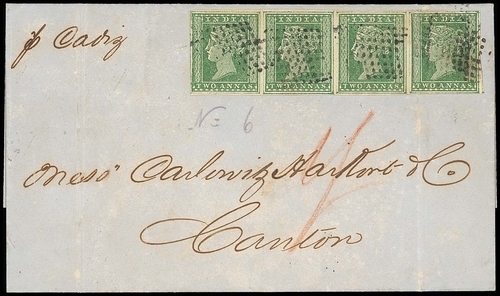 p Cadiz
INDIA INDIA INDIA INDIA
TWO ANNAS TWO ANNAS TWO ANNAS TWO ANNAS
N= 6
Mess^s Carlowitz Harkort & Co
Canton